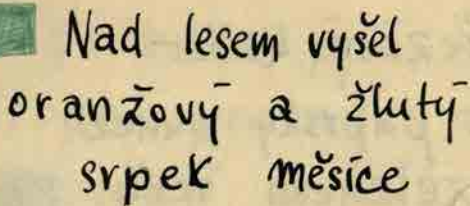 Nad lesem vyšel
oranžový a žlutý
srpek měsíce